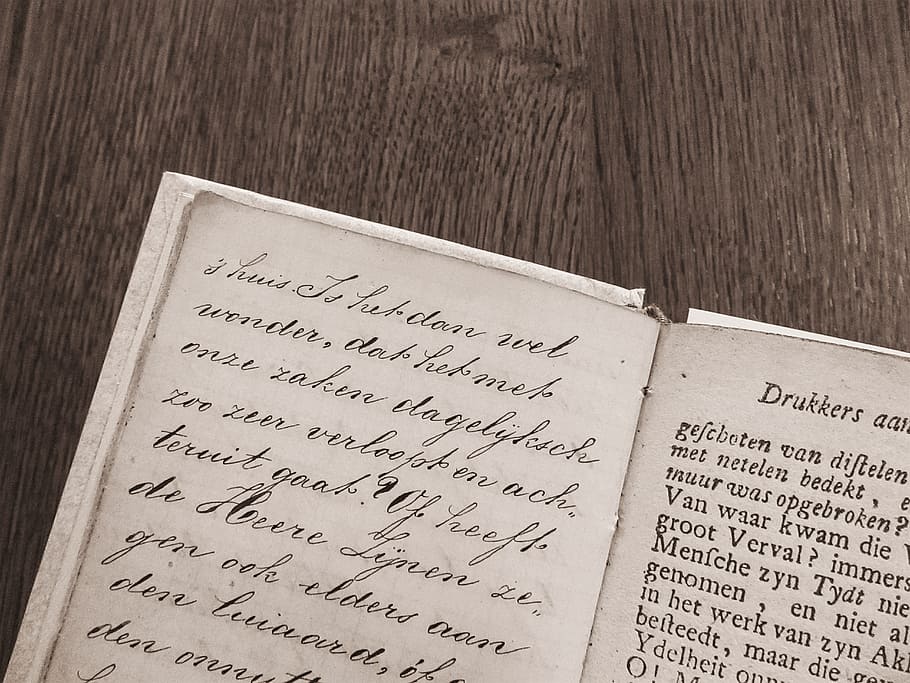 's huis. Is het dan wel
wonder, dat het met
onze zaken dagelijksch
zoo zeer verloopt en ach„
teruit gaat? Of heeft
de Heere Zijnen ze„
gen ook elders aan
den luiaard, óf
den onnut
Drukkers aan
geſchoten van diſtelen
met netelen bedekt, e
muur was opgebroken?
Van waar kwam die V
groot Verval? immers
Menſche zyn Tydt nie
genomen, en niet al
in het werk van zyn Ak
beſteedt, maar die gew
Ydelheit onn
O! M